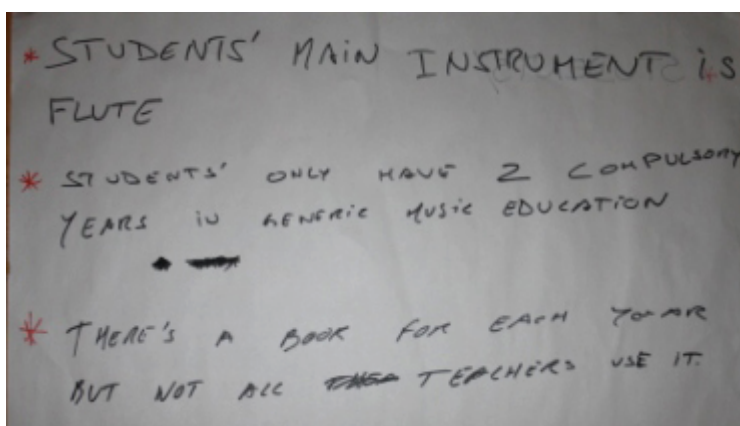 * STUDENTS' MAIN INSTRUMENT is
FLUTE
* STUDENTS' ONLY HAVE 2 COMPULSORY
YEARS iN GENERic MUSic EDUCATION
* THERE'S A BOOK FOR EACH YEAR
BUT NOT ALL TEACHERS USE IT.